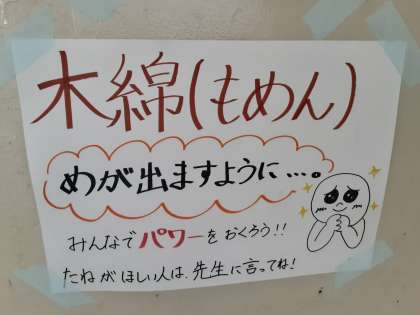 木綿(もめん)
めが出ますように…。
みんなでパワーをおくろう!!
たねがほしい人は、先生に言ってね!